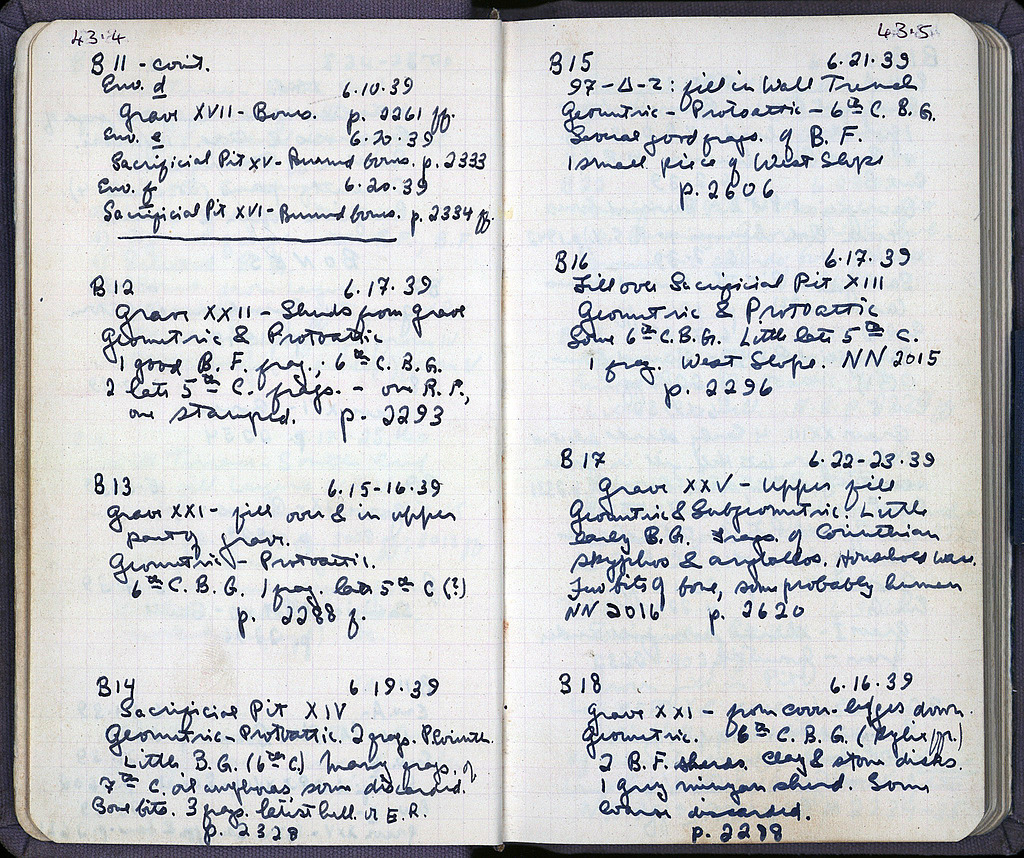 43·4
B11 - cont.
Env. d 6·10·39
Grave XVII - Bones. p. 2261 ff.
Env. e 6·20·39
Sacrificial Pit XV - Burned bones. p. 2333
Env. f 6·20·39
Sacrificial Pit XVI - Burned bones. p. 2334 ff.
B12 6·17·39
Grave XXII - Sherds from grave
Geometric & Protoattic
1 good B. F. frag.; 6th C. B.G.
2 late 5th C. frags. - one R.F.,
one stamped. p. 2293
B13 6·15-16·39
Grave XXI - fill over & in upper
part of grave.
Geometric - Protoattic.
6th C. B. G. 1 frag. late 5th C (?)
p. 2288 f.
B14 6·19·39
Sacrificial Pit XIV
Geometric - Protoattic. 2 frags. Plainth.
Little B.G. (6th C.) Many frags. of
7th C. oil amphoras, some discarded.
Bone bits. 3 frags. latest hell. or E.R.
p. 2328
43·5
B15 6·21·39
97-Δ-2: fill in Wall Trench
Geometric - Protoattic - 6th C. B.G.
Several good frags. of B. F.
1 small piece of West Slope
p. 2606
B16 6·17·39
Fill over Sacrificial Pit XIII
Geometric & Protoattic
Some 6th C. B.G. Little late 5th C.
1 frag. West Slope. NN 2015
p. 2296
B17 6·22-23·39
Grave XXV - upper fill
Geometric & Subgeometric. Little
early B.G. Frags. of Corinthian
skyphos & aryballos. Household ware.
Few bits of bone, some probably human
NN 2016 p. 2620
B18 6·16·39
Grave XXI - from cover-ledges down.
Geometric. 6th C. B.G. (kylix fr.)
2 B.F. sherds. Clay & stone disks.
1 grey minyan sherd. Some
coarse discarded.
p. 2288